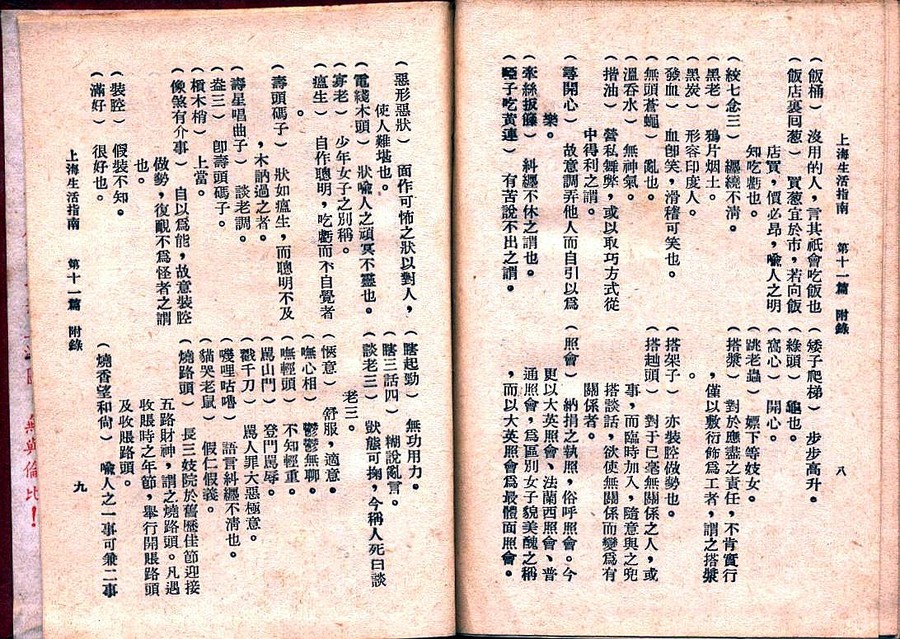 上海生活指南　第十一篇　附錄
八
（飯桶）　沒用的人，言其祇會吃飯也
（飯店裏回葱）　買葱宜於市，若向飯
店買，價必昂，喻人之明
知吃虧也。
（絞七念三）　纒繞不清。
（黑老）　鴉片烟土。
（黑炭）　形容印度人。
（發血）　血卽笑，滑稽可笑也。
（無頭蒼蠅）　亂也。
（溫吞水）　無神氣。
（揩油）　營私舞弊，或以取巧方式從
中得利之謂。
（尋開心）　故意調弄他人而自引以爲
樂。
（牽絲扳藤）　糾纒不休之謂也。
（啞子吃黃連）　有苦說不出之謂。
（矮子爬梯）　步步高升。
（綠頭）　龜也。
（窩心）　開心。
（跳老蟲）　嫖下等妓女。
（搭漿）　對於應盡之責任，不肯實行
，僅以敷衍飾爲工者，謂之搭漿
。
（搭架子）　亦裝腔做勢也。
（搭赸頭）　對于已毫無關係之人，或
事，而臨時加入，隨意與之兜
搭談話，欲使無關係而變爲有
關係者。
（照會）　納捐之執照，俗呼照會。今
更以大英照會、法蘭西照會、普
通照會，爲區別女子貌美醜之稱
，而以大英照會爲最體面照會。
（惡形惡狀）　面作可怖之狀以對人，
使人難堪也。
（電綫木頭）　狀喩人之頑冥不靈也。
（寡老）　少年女子之別稱。
（瘟生）　自作聰明，吃虧而不自覺者
。
（壽頭碼子）　狀如瘟生，而聰明不及
，木訥過之者。
（壽星唱曲子）　談老調。
（盎三）　卽壽頭碼子。
（櫝木梢）　上當。
（像煞有介事）　自以爲能，故意裝腔
做勢，復覥不爲怪者之謂
也。
（裝腔）　假裝不知。
（滿好）　很好也。
（瞎起勁）　無功用力。
（瞎三話四）　糊說亂言。
（談老三）　狀態可掬，今稱人死曰談
老三。
（愜意）　舒服，適意。
（嘸心相）　鬱鬱無聊。
（嘸輕頭）　不知輕重。
（罵山門）　登門罵辱。
（戳千刀）　罵人罪大惡極意。
（嘰哩咕嚕）　語言糾纒不清也。
（貓哭老鼠）　假仁假義。
（燒路頭）　長三妓院於舊歷佳節迎接
五路財神，謂之燒路頭。凡遇
收賬時之年節，舉行開賬路頭
及收賬路頭。
（燒香望和尙）　喩人之一事可兼二事
上海生活指南　第十一篇　附錄
九
無與倫比！